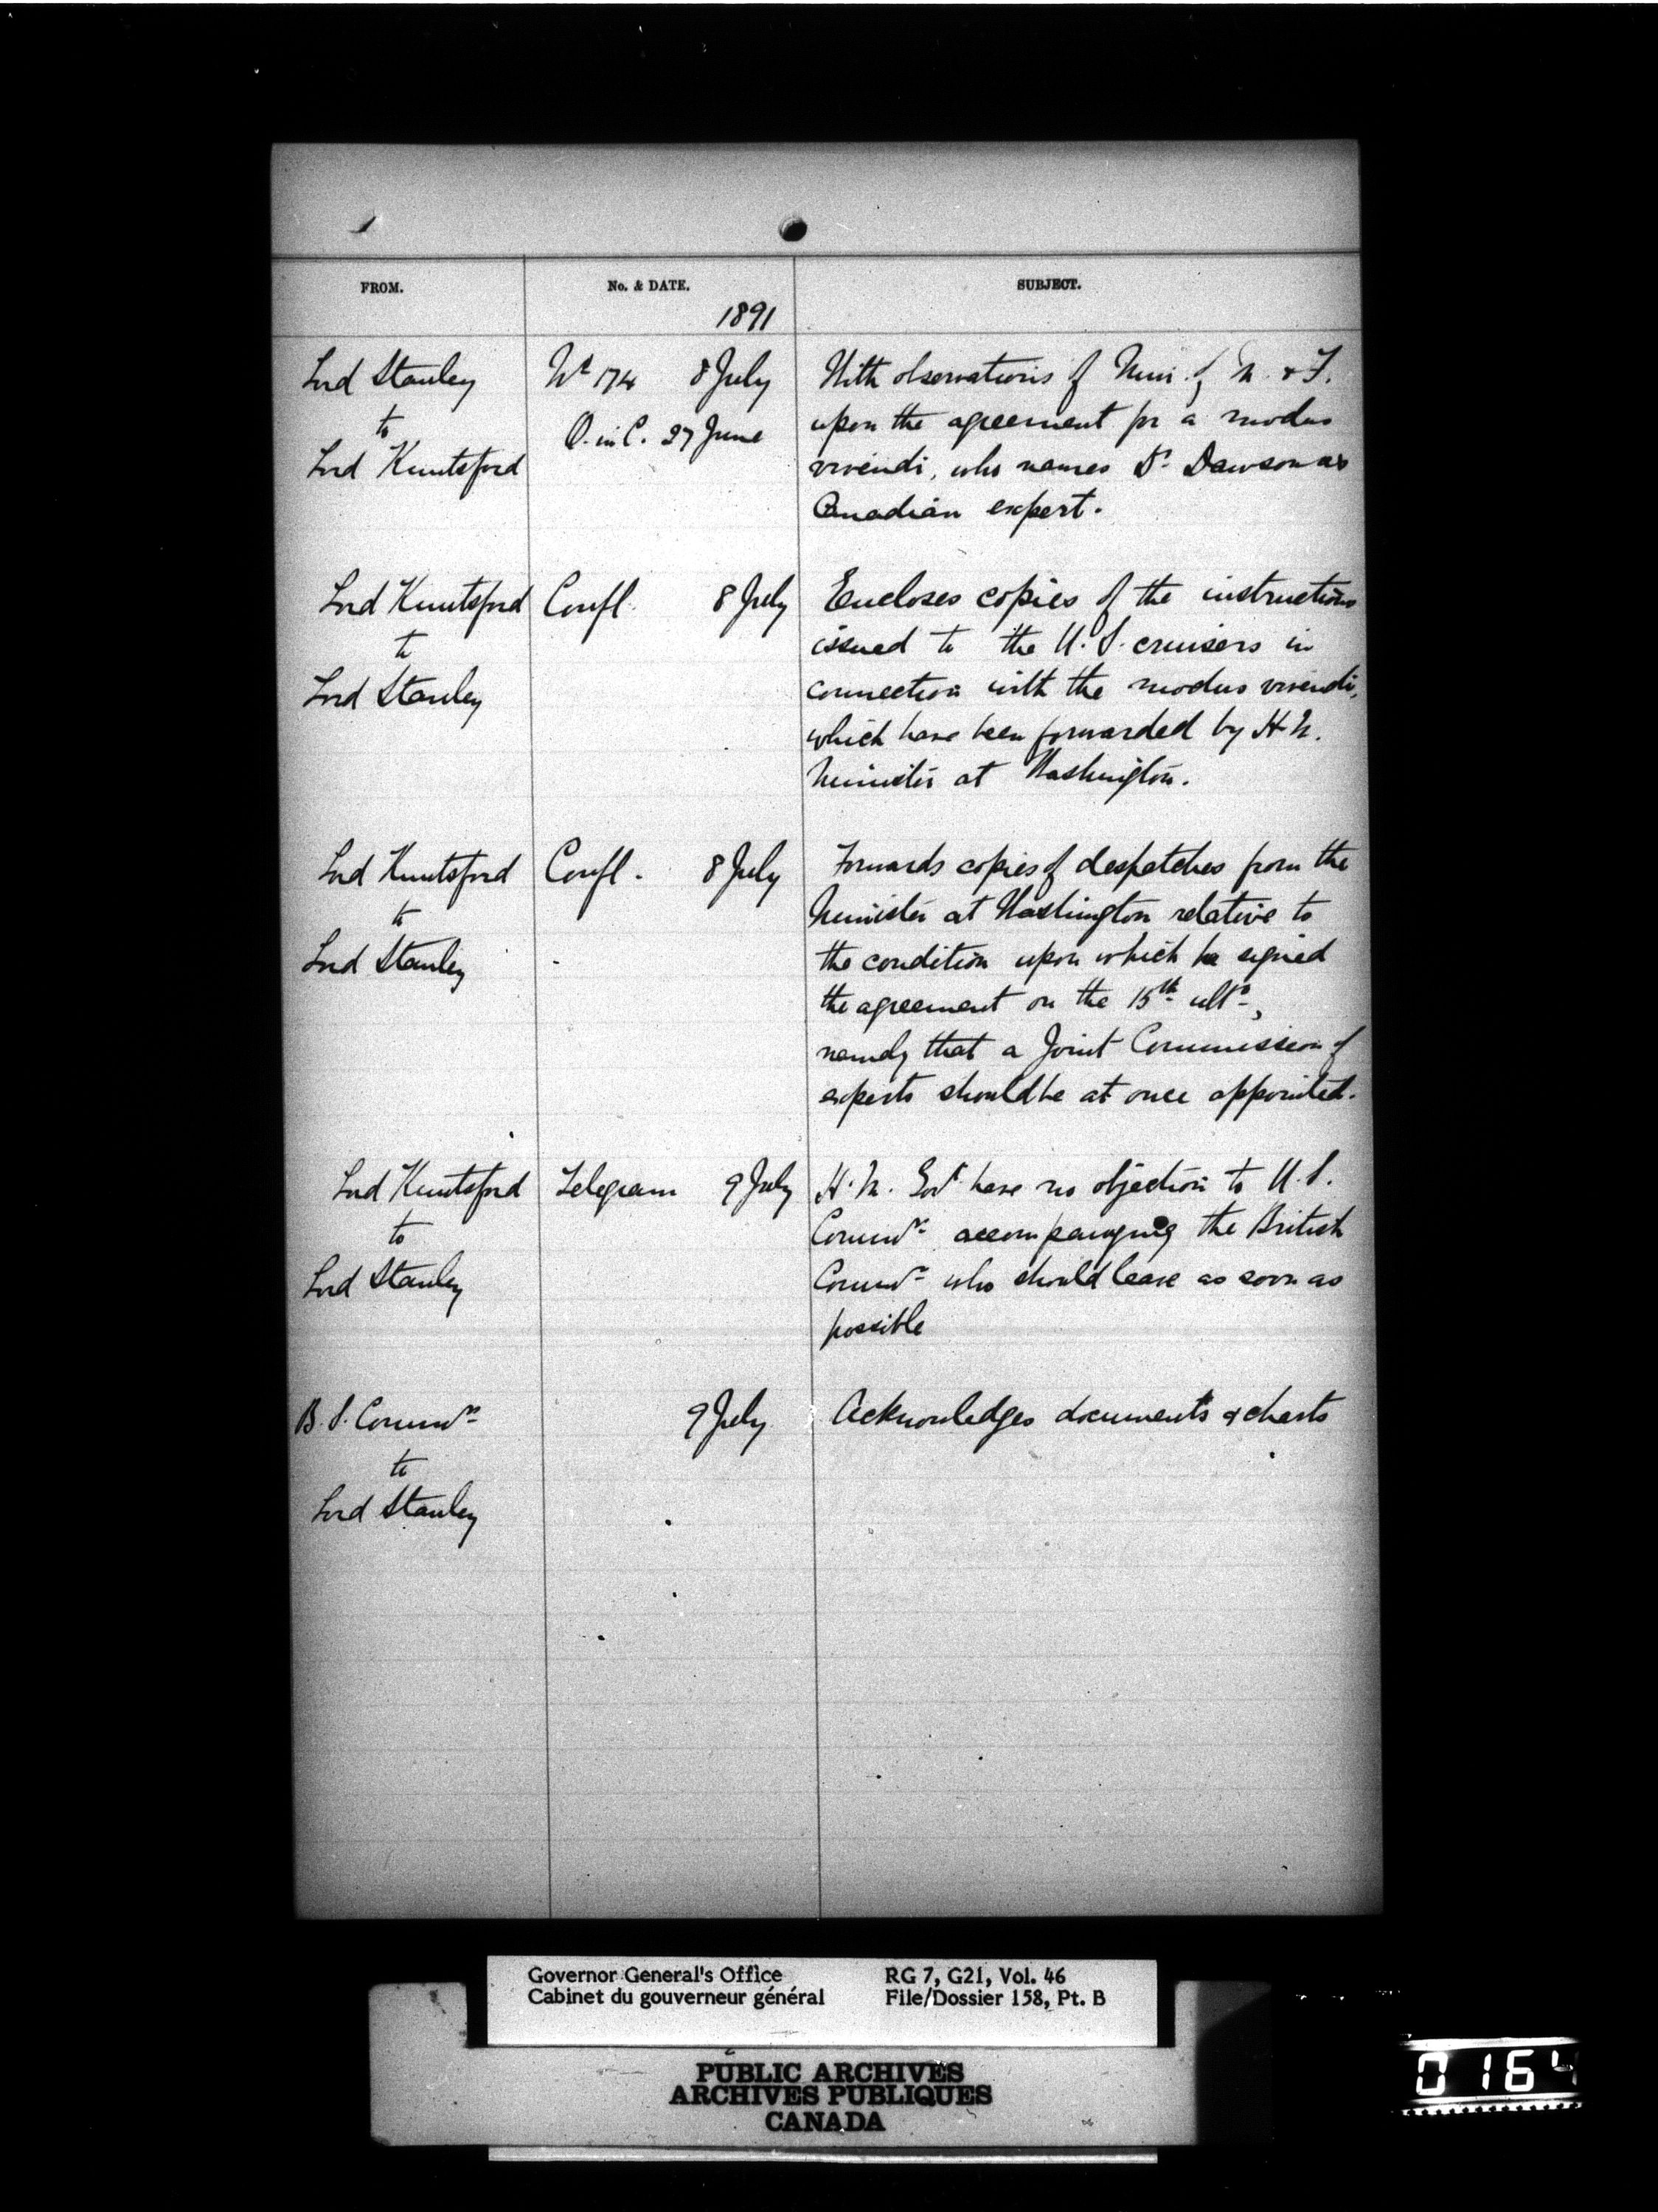 FROM. No. & DATE. SUBJECT.
1891
Lord Stanley
to
Lord Knutsford
No 174 8 July
O. in C. 27 June
With observations of Min. of M. & F.
upon the agreement for a modus
vivendi, who names Dr Dawson as
Canadian expert.
Lord Knutsford
to
Lord Stanley
Confl. 8 July
Encloses copies of the instructions
issued to the U.S. cruisers in
connection with the modus vivendi,
which have been forwarded by H.M.
Minister at Washington.
Lord Knutsford
to
Lord Stanley
Confl. 8 July
Forwards copies of despatches from the
Minister at Washington relative to
the condition upon which he signed
the agreement on the 15th ulto,
namely that a Joint Commission of
experts should be at once appointed.
Lord Knutsford
to
Lord Stanley
Telegram 9 July
H.M. Govt have no objection to U.S.
Commrs accompanying the British
Commrs who should leave as soon as
possible
B.S. Commrs
to
Lord Stanley
9 July
Acknowledges documents & charts
Governor General's Office
Cabinet du gouverneur général
RG 7, G21, Vol. 46
File/Dossier 158, Pt. B
PUBLIC ARCHIVES
ARCHIVES PUBLIQUES
CANADA
0164